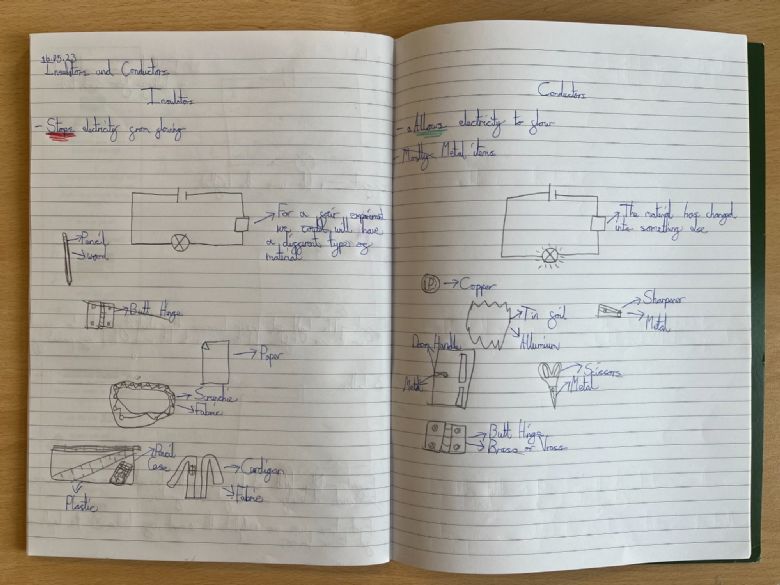 16.05.23
Insulators and Conductors
Insulators
- Stops electricity from flowing
→ For a fair experiment
we could will have
a different type of
material
Pencil
wood
→ Butt Hinge
→ Paper
→ Scrunchie
→ Fabric
→ Pencil
Case
Plastic
→ Cardigan
→ Fabric
Conductors
- Allows electricity to flow
- Mostly Metal items
→ The material has changed
into something else
P → Copper
→ Tin foil
Alluminium
→ Sharpener
→ Metal
Door Handle
Metal
→ Scissors
→ Metal
→ Butt Hinge
→ Brass or